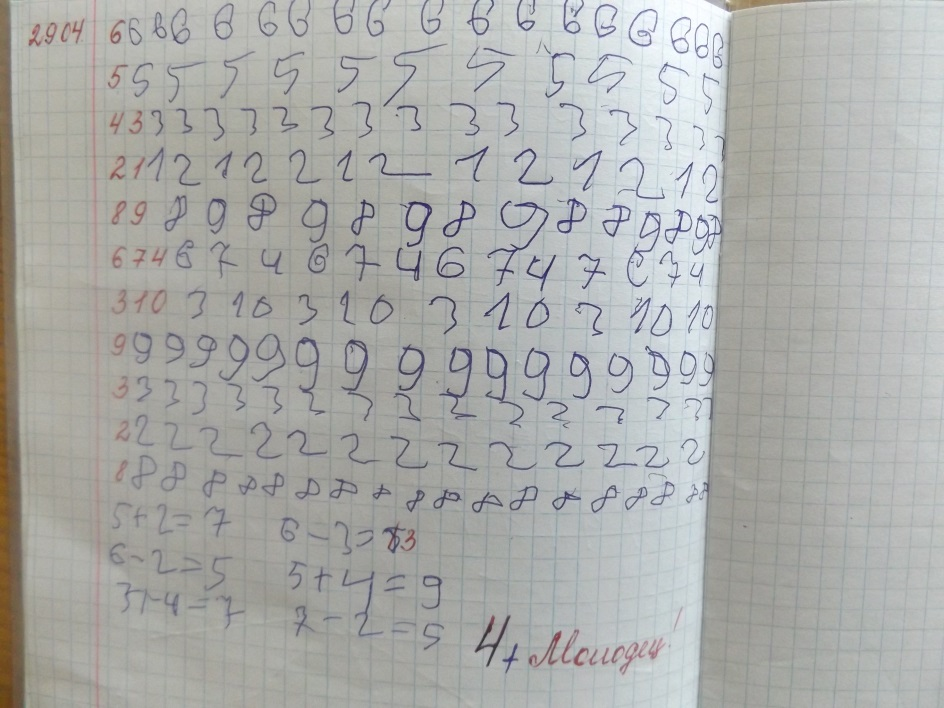 2904 6 6 6 6 6 6 6 6 6 6 6 6 6 6 6 6 6 6
5 5 5 5 5 5 5 5 5 5 5 5
4 3 3 3 3 3 3 3 3 3 3 3 3 3 3 3
2 1 1 2 1 2 2 1 2 1 2 1 2 1 2
8 9 8 9 8 9 8 9 8 9 8 8 9 8 9 8
6 7 4 6 7 4 6 7 4 6 7 4 7 6 7 4
3 10 3 10 3 10 3 10 3 10 10
9 9 9 9 9 9 9 9 9 9 9 9 9 9 9 9 9
3 3 3 3 3 3 3 3 3 3 3 3 3 3 3
2 2 2 2 2 2 2 2 2 2 2 2 2 2
8 8 8 8 8 8 8 8 8 8 8 8 8 8 8 8 8 8 8
5+2=7 6-3=3
6-2=5 5+4=9
3+4=7 7-2=5
4+ Молодец!